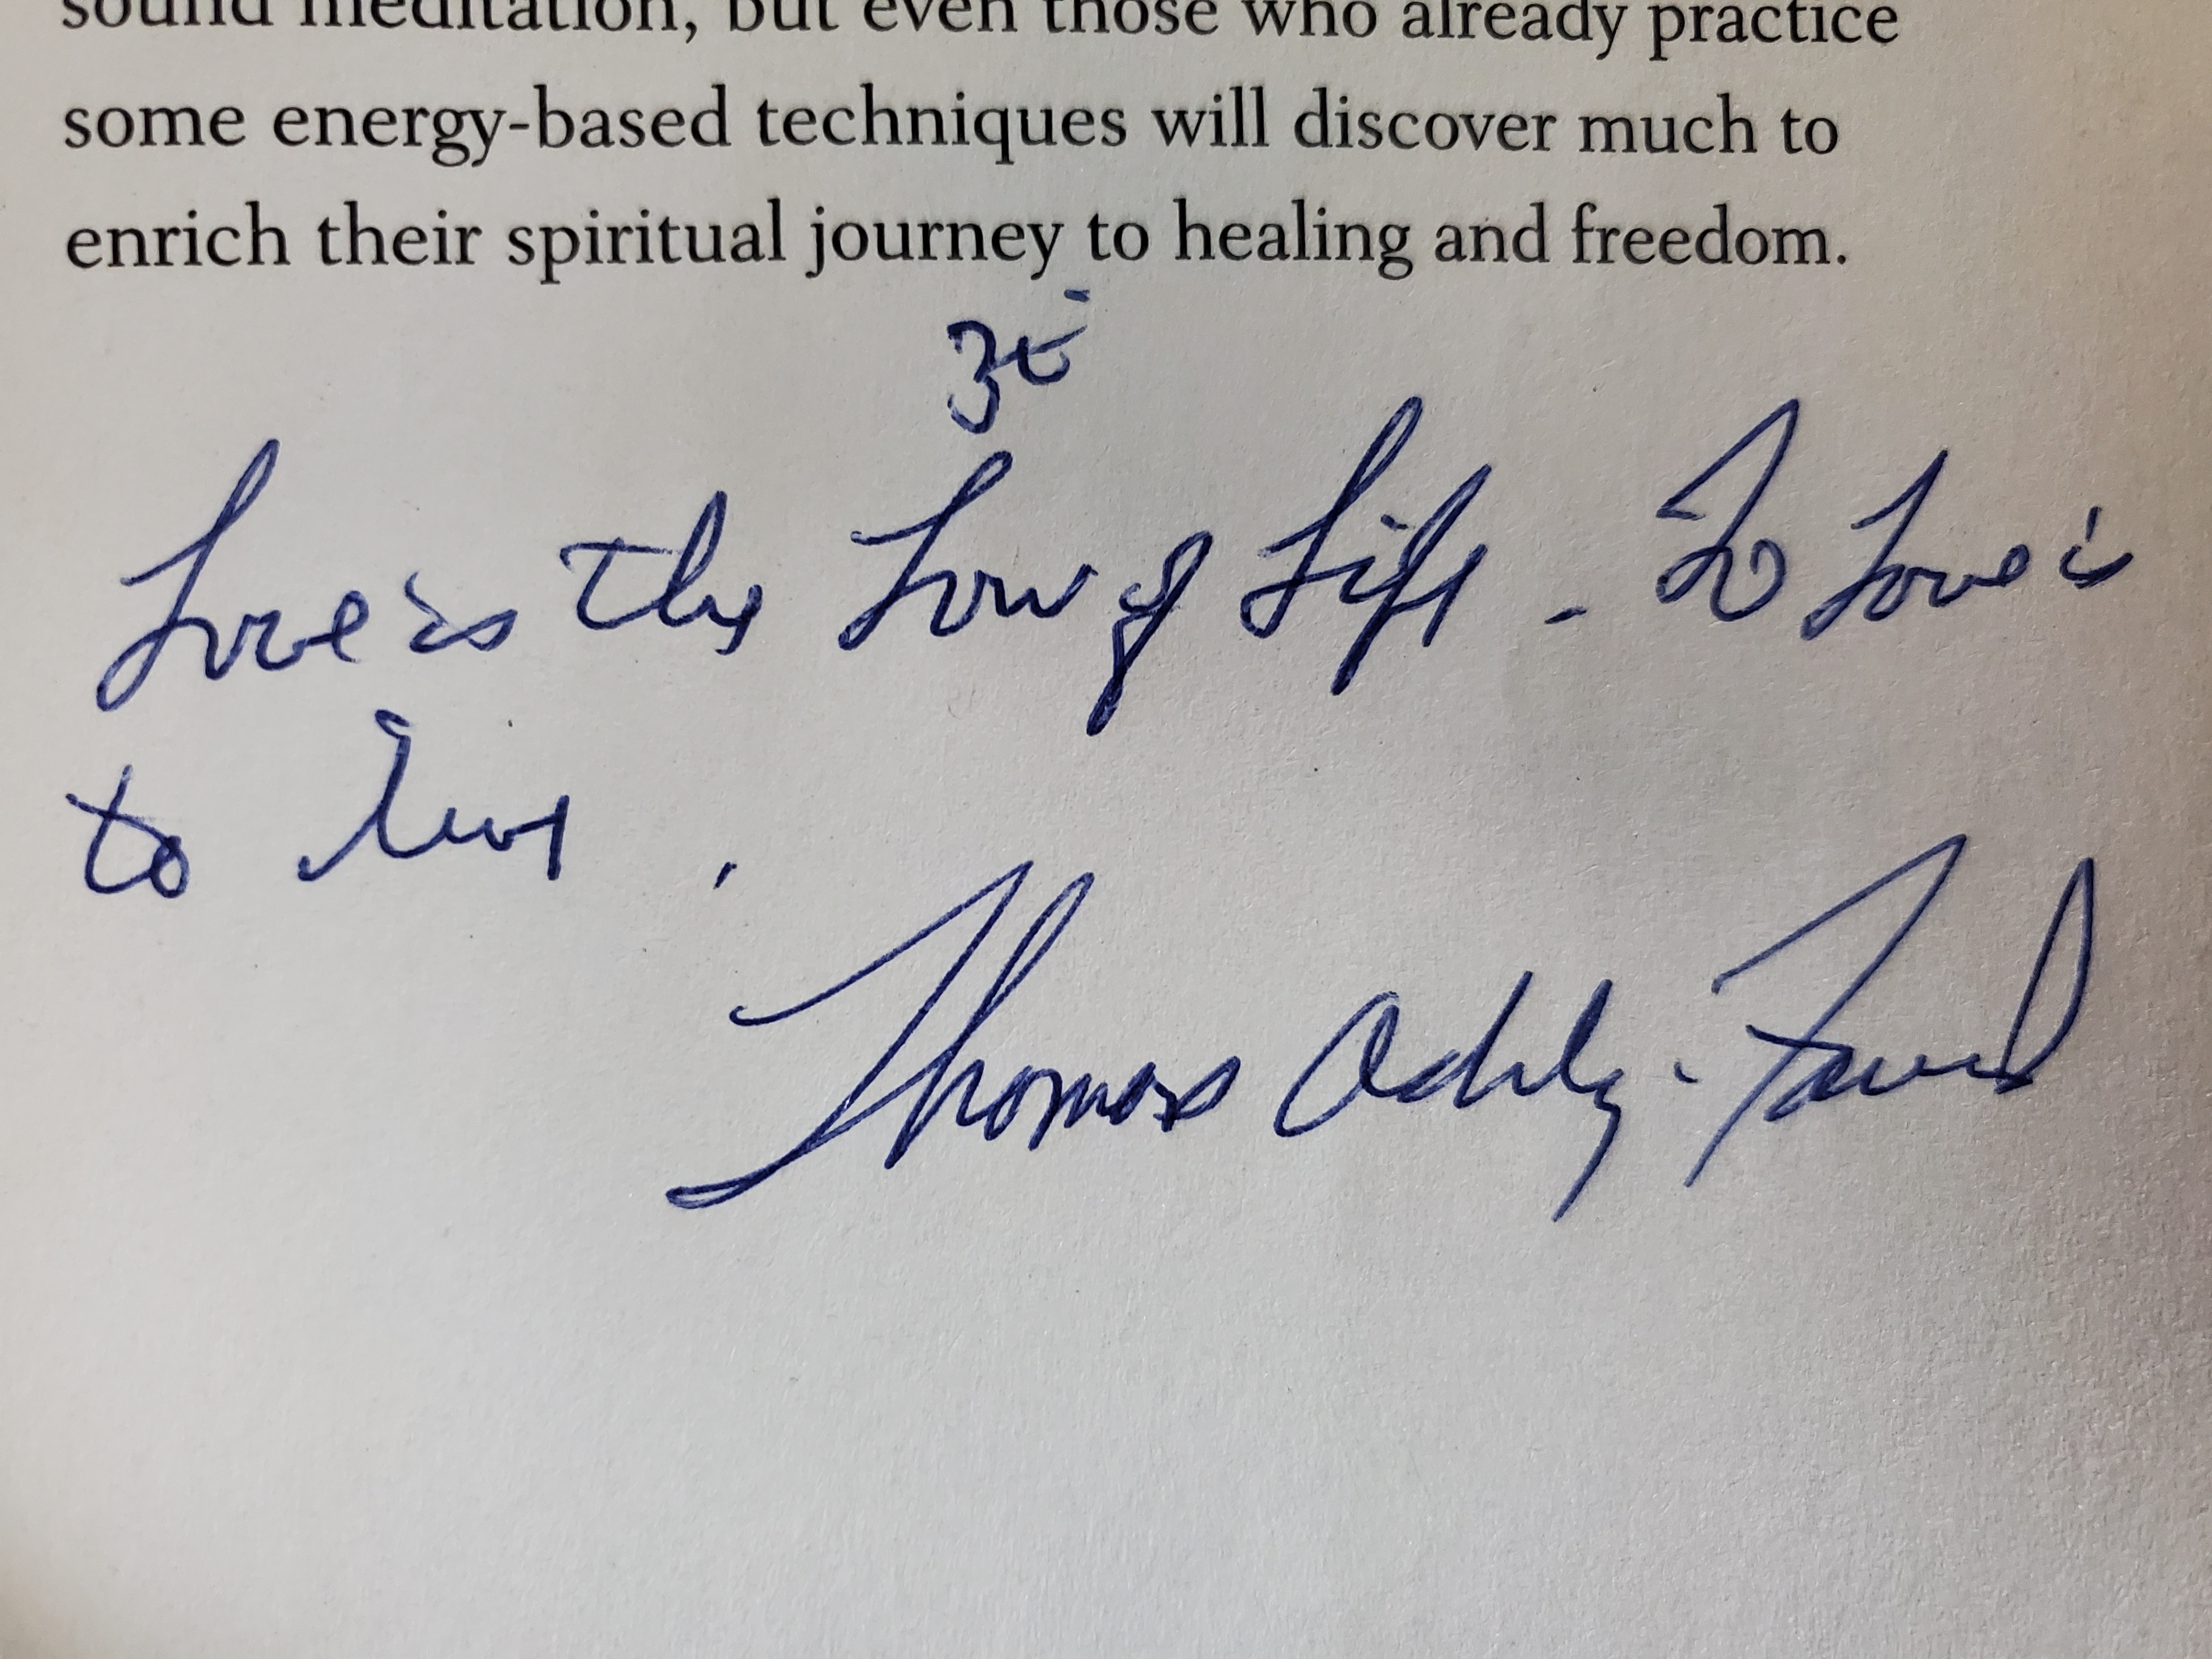 sound meditation, but even those who already practice
some energy-based techniques will discover much to
enrich their spiritual journey to healing and freedom.
ॐ
Love is the Law of Life - To Love is
to live.
Thomas Ashley-Farrand